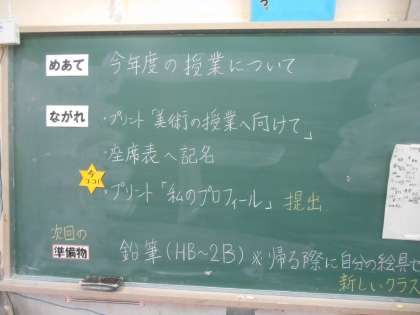 めあて 今年度の授業について
ながれ ・プリント「美術の授業へ向けて」
・座席表へ記名
今ココ! ・プリント「私のプロフィール」 提出
次回の準備物 鉛筆(HB~2B) ※帰る際に自分の絵具セ
新しいクラス